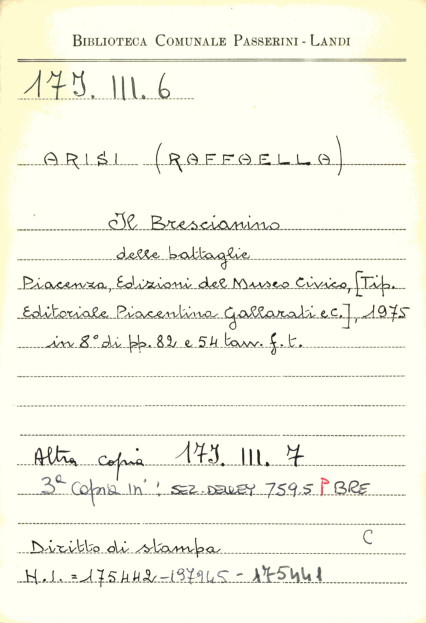 BIBLIOTECA COMUNALE PASSERINI - LANDI
17J. III. 6
ARISI (RAFFAELLA)
Il Brescianino
delle battaglie
Piacenza, Edizioni del Museo Civico, [Tip.
Editoriale Piacentina Gallarati e C.], 1975
in 8° di pp. 82 e 54 tav. f. t.
Altra copia 17J. III. 7
3ª Copia in: SEZ. DEWEY 759.5 P BRE
C
Diritto di stampa
N.I. = 175442 - 197945 - 175441